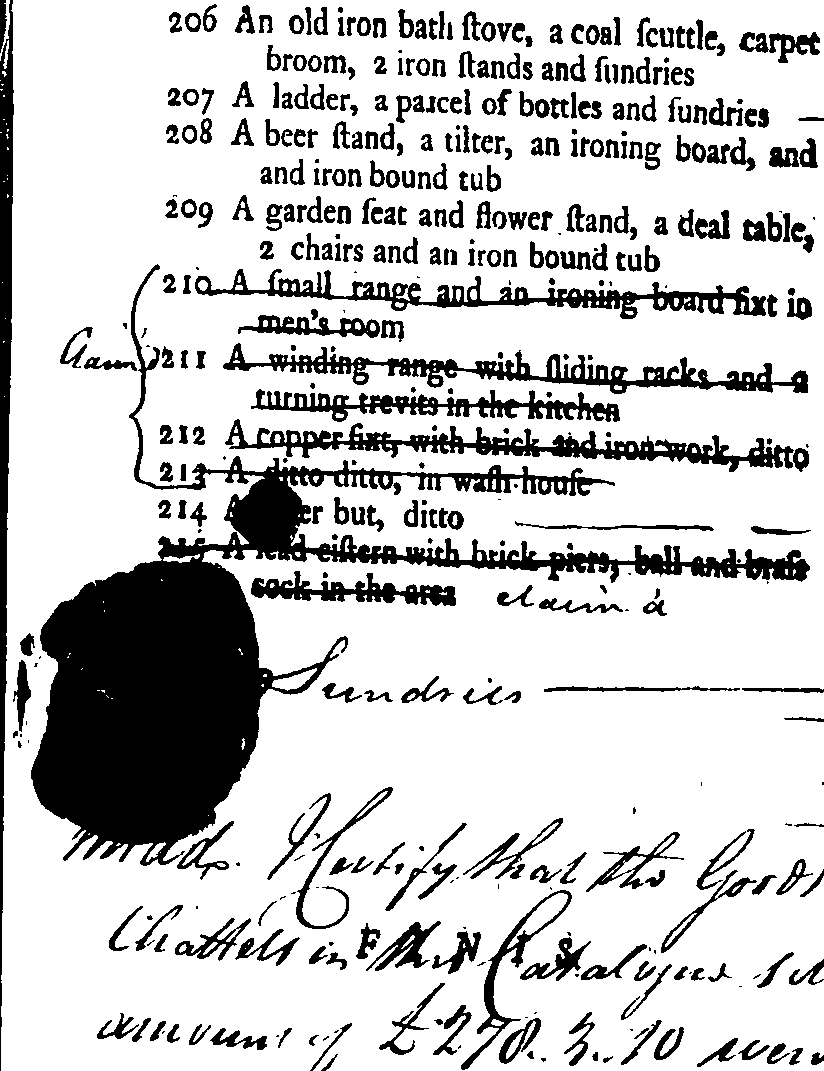 206 An old iron bath ſtove, a coal ſcuttle, carpet
broom, 2 iron ſtands and ſundries
207 A ladder, a parcel of bottles and ſundries —
208 A beer ſtand, a tilter, an ironing board, and
and iron bound tub
209 A garden ſeat and flower ſtand, a deal table,
2 chairs and an iron bound tub
210 A ſmall range and an ironing board fixt in
men's room
Claim'd 211 A winding range with ſliding racks and 2
turning trevits in the kitchen
212 A copper fixt, with brick and iron work, ditto
213 A ditto ditto, in waſh-houſe
214 A er but, ditto
215 A lead ciſtern with brick piers, ball and braſs
cock in the area claim'd
Sundries
Midds. I Certify that the Goods
Chattels in this Catalogue
FINIS
amount of £278.3.10 were